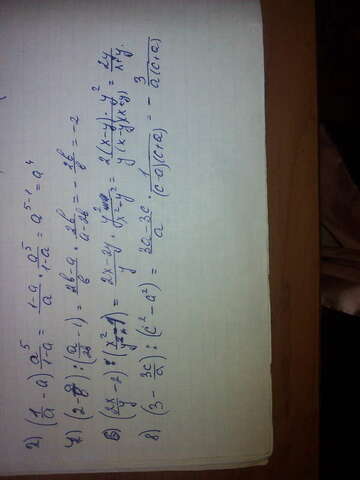 2) (1/a - a) a⁵/1-a = 1-a/a · a⁵/1-a = a⁵⁻¹ = a⁴
4) (2 - ) : (a/2b - 1) = 2b-a/b · 2b/a-2b = - 2b/b = -2
6) (2x/y - 2) : ( ) = 2x-2y/y · y²/x²-y² = 2(x-y) · y²/y(x-y)(x+y) = 2y/x+y.
8) (3 - 3c/a) : (c² - a²) = 3a-3c/a · 1/(c-a)(c+a) = - 3/a(c+a)